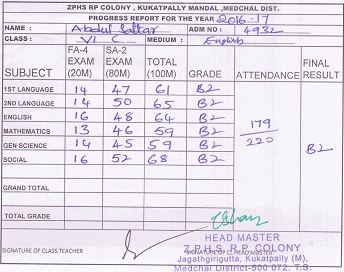 ZPHS RP COLONY, KUKATPALLY MANDAL, MEDCHAL DIST.
PROGRESS REPORT FOR THE YEAR 2016-17
NAME : Abdul Sattar ADM NO : 4932
CLASS : VI C MEDIUM : English
SUBJECT FA-4 EXAM (20M) SA-2 EXAM (80M) TOTAL (100M) GRADE ATTENDANCE FINAL RESULT
1ST LANGUAGE 14 47 61 B2
2ND LANGUAGE 14 50 65 B2
ENGLISH 16 48 64 B2
MATHEMATICS 13 46 59 B2
GEN SCIENCE 14 45 59 B2
SOCIAL 16 52 68 B2
179
220
B2
GRAND TOTAL
TOTAL GRADE
SIGNATURE OF CLASS TEACHER
HEAD MASTER
Z.P.H.S. R.P. COLONY
Jagathgirigutta, Kukatpally (M),
Medchal District-500 072. T.S.